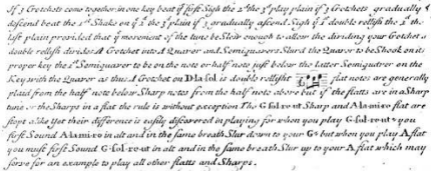 If 3 Crotchets come together in one key beat yᵉ first Sigh the 2ᵈ the 3ᵈ play plain if 3 Crotchets gradually
descend beat the 1ˢᵗ Shake on yᵉ 2 the 3 plain if 3 gradually ascend Sigh yᵉ 1 double rellish the 2 the
last plain provided that yᵉ movement of the tune be Slow enough to allow the dividing your Crotchet a
double rellish divides A Crotchet into A Quaver and Semiquavers Slurd the Quaver to be Shook on its
proper key the 1ˢᵗ Semiquaver to be on the note or half note just below the latter Semiquaver on the
Key with the Quaver as thus A Crotchet on D la sol is double rellisht flat notes are generally
plaid from the half note below Sharp notes from the half note above but if the flatts are in a Sharp
tune or the Sharps in a flat the rule is without exception The G sol-re-ut Sharp and A la mi re flat are
stopt alike Yet their difference is easily discovered in playing for when you play G sol-re-ut you
first Sound A la mi re in alt and in the same breath Slur down to your G but when you play A flat
you must first Sound G sol-re-ut in alt and in the same breath Slur up to your A flat which may
serve for an example to play all other flatts and Sharps.